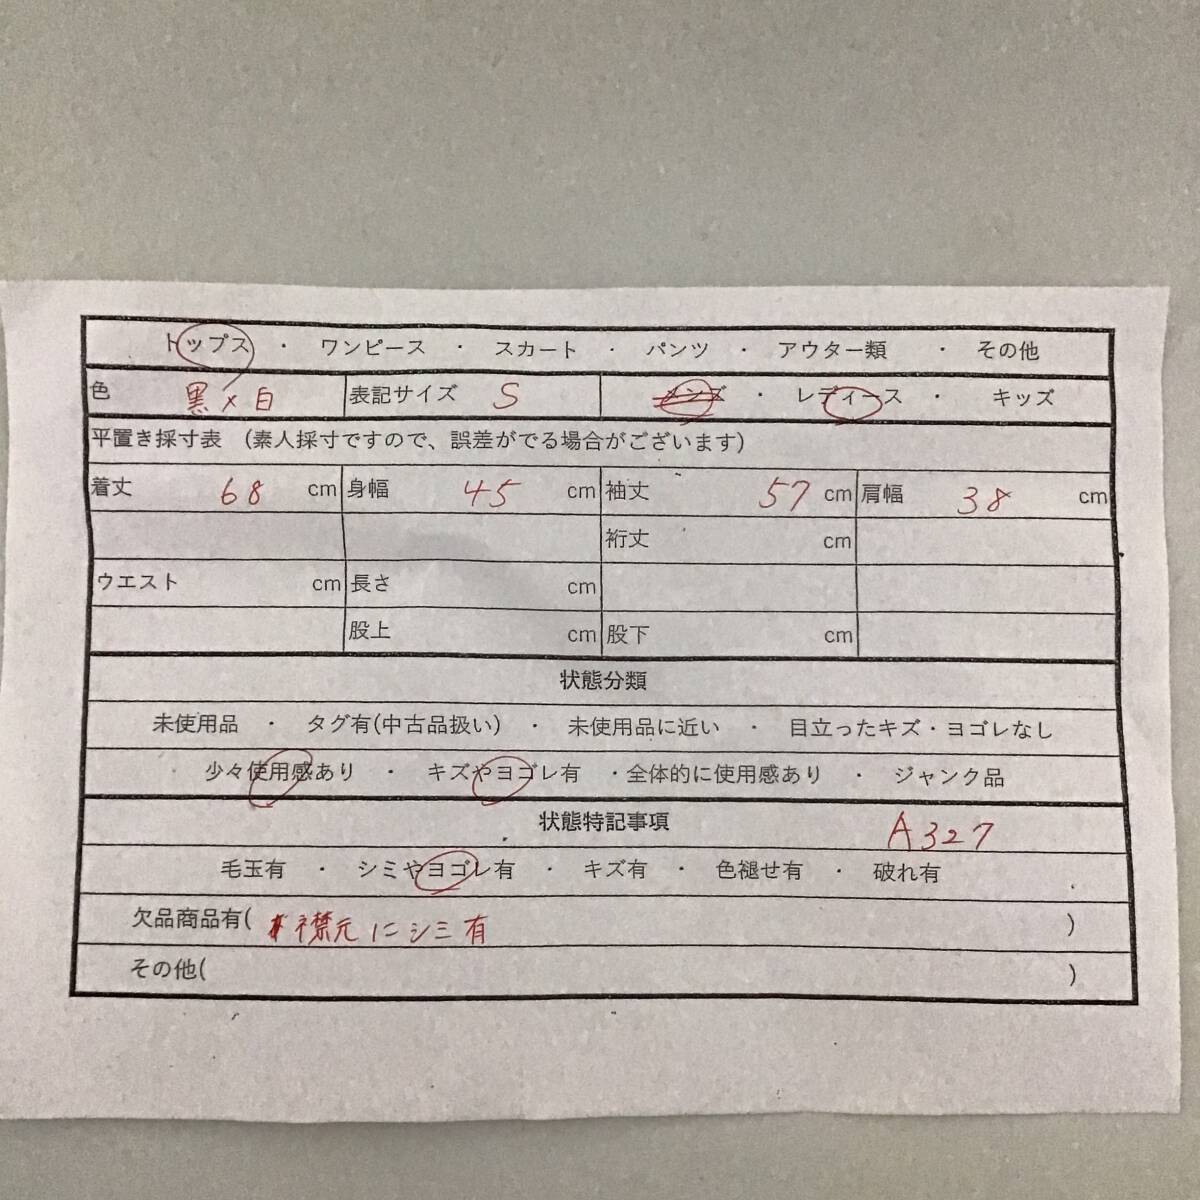 トップス ・ ワンピース ・ スカート ・ パンツ ・ アウター類 ・ その他
色 黒×白 表記サイズ S メンズ ・ レディース ・ キッズ
平置き採寸表 (素人採寸ですので、誤差がでる場合がございます)
着丈 68 cm 身幅 45 cm 袖丈 57 cm 肩幅 38 cm
裄丈 cm
ウエスト cm 長さ cm
股上 cm 股下 cm
状態分類
未使用品 ・ タグ有(中古品扱い) ・ 未使用品に近い ・ 目立ったキズ・ヨゴレなし
少々使用感あり ・ キズやヨゴレ有 ・全体的に使用感あり ・ ジャンク品
状態特記事項 A327
毛玉有 ・ シミやヨゴレ有 ・ キズ有 ・ 色褪せ有 ・ 破れ有
欠品商品有( 襟元にシミ有 )
その他( )